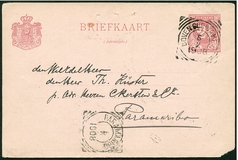 BRIEFKAART
den WelEdelHeer
den Heer Th. Küster
p. Adr. Heeren C. Kersten & Co.
Paramaribo